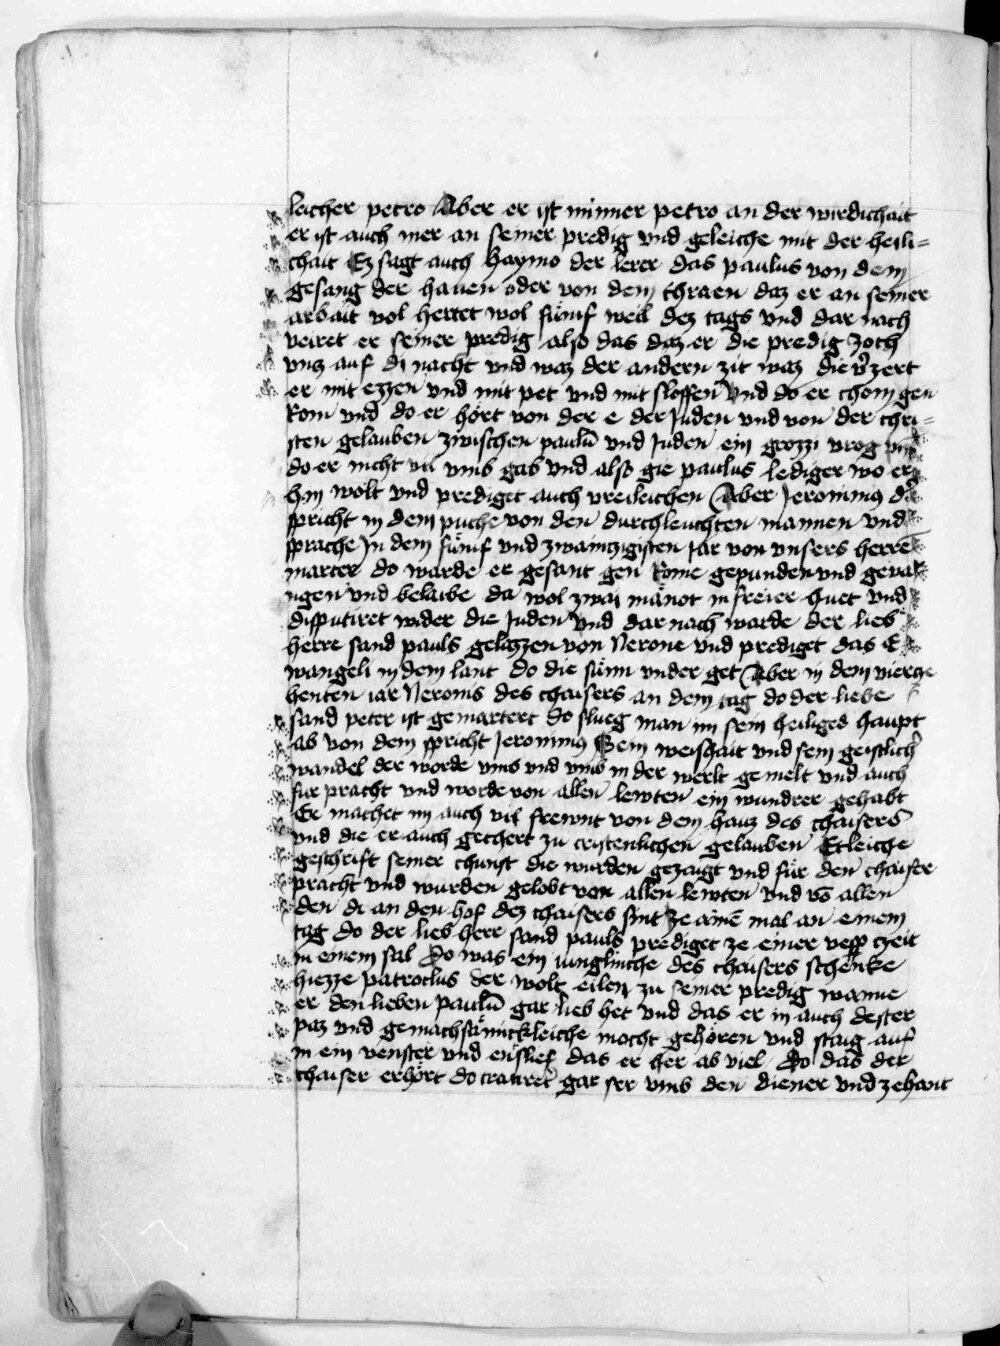 leicher petro Aber er ist minner petro an der wirdichait
er ist auch mer an seiner predig vnd geleiche mit der heili=
chait Ez sagt auch Haymo der lerer das paulus von dem
gesang der hanen oder von dem chraen daz er an seiner
arbait vol hertet wol fünif weil dez tags vnd dar nach
veiret er seiner predig also das daz er die predig zoch
vntz auf di nacht vnd waz der andern zit waz die v̉zert
er mit ezzen vnd mit pet vnd mit sloffen Vnd do er chom gen
Rom vnd do er hört von der e der Juden vnd von der chri=
sten gelauben zwischen paulū vnd Juden ein grozzi vrog
do er nicht vil vmb gab vnd also gie paulus lediger wo er
hin wolt vnd prediget auch vreileichen Aber Jeronimus d̉
spricht in dem puche von den durchleuchten mannen vnd
sprache In dem fünif vnd zwaintzigisten Jar von vnsers herrē
marter do warde er gesant gen Rome gepunden vnd geva
ngen vnd belaibe da wol zwai mänot in freier huet vnd
disputiret wider die Juden Vnd dar nach warde der lieb
herre sand pauls gelazzen von Nerone vnd prediget das E
wangeli in dem lant do die sunn vnder get Aber in dem vierze
henten iar Neronis des chaisers an dem tag do der liebe
sand peter ist gemartert do slueg man im sein heiliges haupt
ab von dem spricht Jeronimus Sein weishait vnd sein geistlich̉
wandel der worde vmb vnd vmb in der werlt gemelt vnd auch
für pracht vnd worde von allen lewten ein wundrer gehabt
Er machet im auch vil frewnt von dem hauz des chaisers
vnd die er auch gechert zu cristenlichen gelauben Etleiche
geschrift seiner chunst die wurden gezaigt vnd für den chaiser
pracht vnd wurden gelobt von allen lewten vnd vō allen
den di an den hof dez chaisers sint ze ainē mal an einem
tag do der lieb herr sand pauls prediget ze einer vesp̄ czeit
in einem sal Do was ein iunglinche des chaisers schenke
hiezze patroclus der wolt eilen zu seiner predig wanne
er den lieben paulū gar lieb het vnd das er in auch dester
paz vnd gemachsämickleiche mocht gehören vnd staig auf
in ein venster vnd entslief das er her ab viel Do daz der
chaiser erhört do trauret gar ser vmb den diener vnd zehant